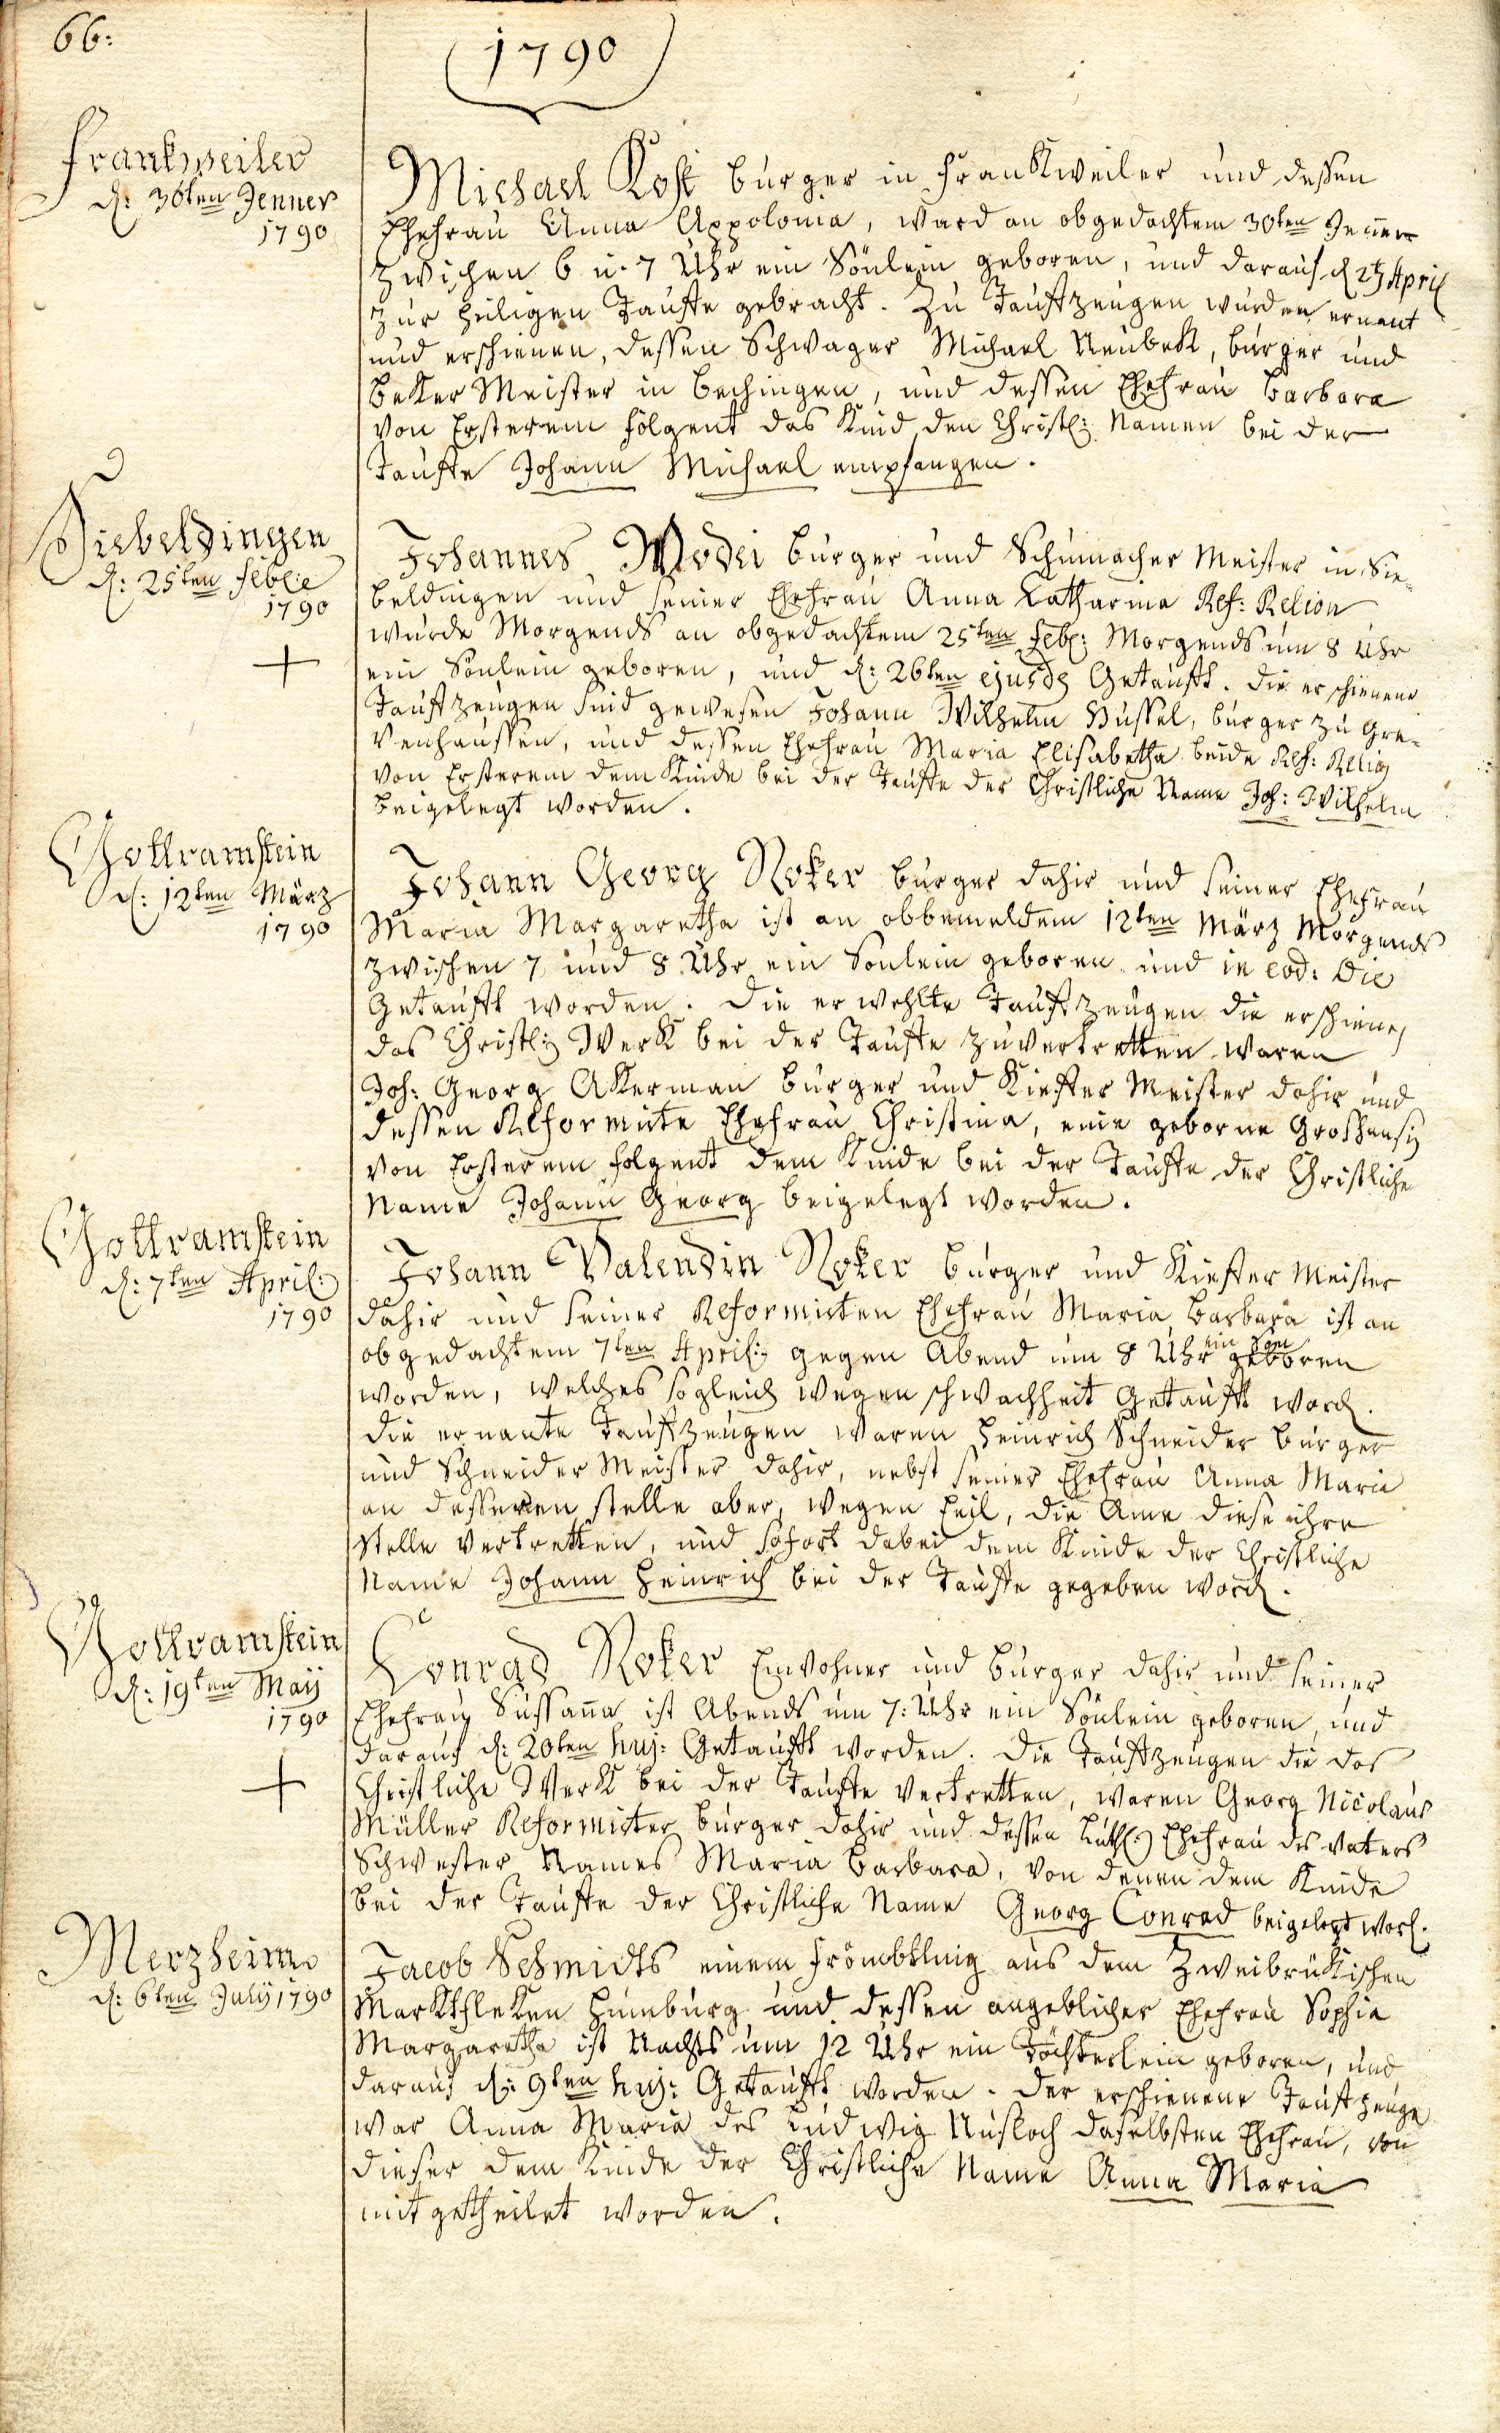 66:
1790
Frankweiler
d: 30ten Jenner
1790
Michael Kost burger in Frankweiler und dessen
Ehefrau Anna Appolonia, ward an obgedachtem 30ten Jenner
zwischen 6 u. 7 Uhr ein Sönlein geboren, und darauf d 2t April
zur heiligen Taufte gebracht. Zu Tauftzeugen wurden ernant
und erschienen, dessen Schwager Michael Neubek, burger und
beker Meister in bechingen, und dessen Ehefrau Barbara
von Ersterem folgent das Kind den Christl: Namen bei der
Taufte Johann Michael empfangen.
Siebeldingen
d: 25ten Febr:
1790
Johannes Modei burger und Schumacher Meister in Sie-
beldingen und seiner Ehefrau Anna Catharina Ref: Relion
wurde Morgends an obgedachtem 25ten Feb: Morgends um 8 Uhr
ein Sönlein geboren, und d: 26ten ejusd Getauft. Die erschienene
Tauftzeugen sind gewesen Johann Wilhelm Hussel, burger zu Gre-
venhaussen, und dessen Ehefrau Maria Elisabetha beide Ref: Relig
von Ersterem dem Kinde bei der Taufte der Christliche Name Joh: Wilhelm
beigelegt worden.
Gottramstein
d: 12ten März
1790
Johann Georg Noker burger dahir und seiner Ehefrau
Maria Margaretha ist an obbemeldem 12ten März Morgends
zwischen 7 und 8 Uhr ein Sönlein geboren und in eod: Die
Getauft worden. Die erwehlte Tauftzeugen die erschienen
das Christl: Werk bei der Taufte zuvertretten waren
Joh: Georg Akerman burger und Kiefter Meister dahir und
dessen Reformirte Ehefrau Christina, eine geborne
von Ersterem folgent dem Kinde bei der Taufte der Christliche
Name Johann Georg beigelegt worden.
Gottramstein
d: 7ten April:
1790
Johann Valendin Noker burger und Kiefter Meister
dahir und seiner Reformirten Ehefrau Maria Barbara ist an
obgedachtem 7ten April: gegen Abend um 8 Uhr ein Son geboren
worden, welches sogleich wegen schwachheit Getauft word.
Die ernante Tauftzeugen waren Heinrich Schneider burger
und Schneider Meister dahir, nebst seiner Ehefrau Anna Maria
an desseren stelle aber, wegen Eeil, die Ame diese ihre
stelle vertretten, und sofort dabei dem Kinde der Christliche
Name Johann Heinrich bei der Taufte gegeben word.
Gottramstein
d: 19ten Maÿ
1790
Conrad Noker Einwohner und burger dahir und seiner
Ehefrau Sussanna ist Abends um 7: Uhr ein Sönlein geboren, und
darauf d: 20ten huj: Getauft worden. Die Tauftzeugen die das
Christliche Werk bei der Taufte vertretten, waren Georg Nicolaus
Müller Reformirter burger dahir und dessen Luth: Ehefrau des Vaters
Schwester Names Maria Barbara, von denen dem Kinde
bei der Taufte der Christliche Name Georg Conrad beigelegt word.
Merzheim
d: 6ten Julÿ 1790
Jacob Schmidts einem Frömbtling aus dem Zweibrükischen
Marktfleken Humburg und dessen angeblicher Ehefrau Sophia
Margaretha ist Nachts um 12 Uhr ein Töchterlein geboren, und
darauf d: 9ten huj: Getauft worden. Der erschienene Tauftzeuge
war Anna Maria des Ludwig Nusloch daselbsten Ehefrau, von
dieser dem Kinde der Christliche Name Anna Maria
mitgetheilet worden.